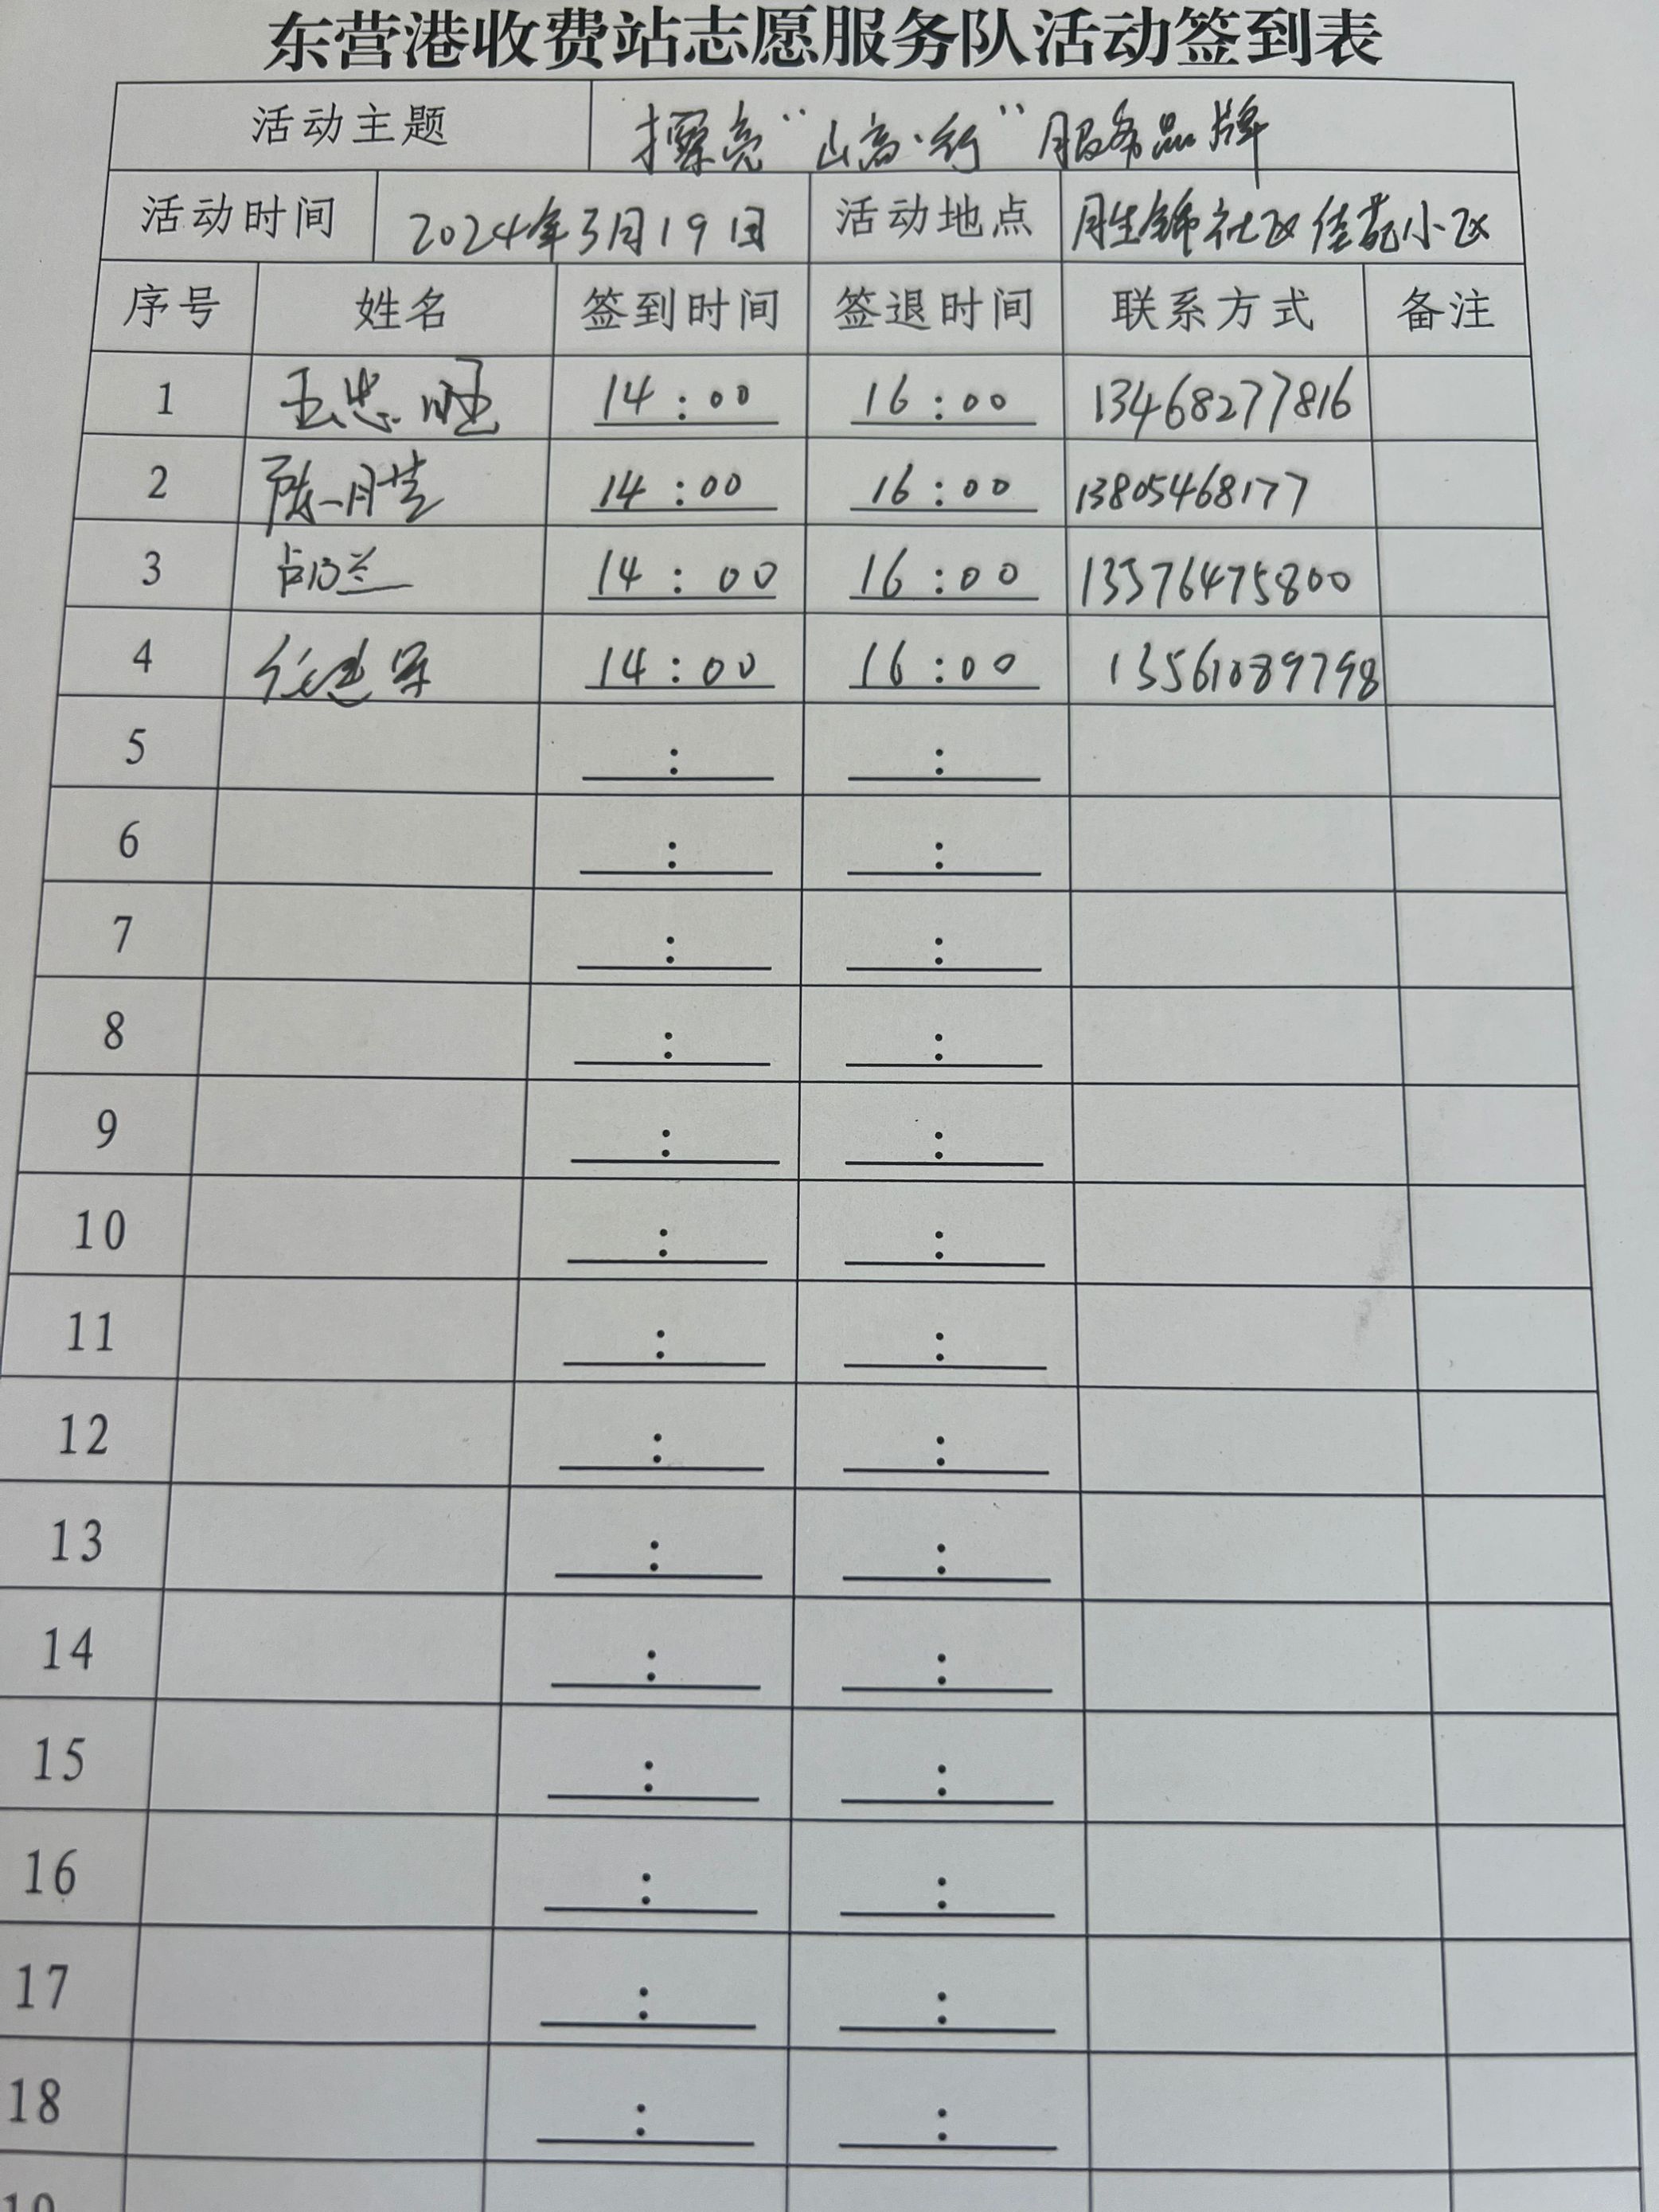 东营港收费站志愿服务队活动签到表
活动主题 擦亮“山高·行”服务品牌
活动时间 2024年3月19日 活动地点 胜锦社区佳苑小区
序号 姓名 签到时间 签退时间 联系方式 备注
1 王忠旺 14:00 16:00 13468277816
2 陈月芸 14:00 16:00 13805468177
3 14:00 16:00 13376475800
4 任建军 14:00 16:00 13561089798
5 : :
6 : :
7 : :
8 : :
9 : :
10 : :
11 : :
12 : :
13 : :
14 : :
15 : :
16 : :
17 : :
18 : :